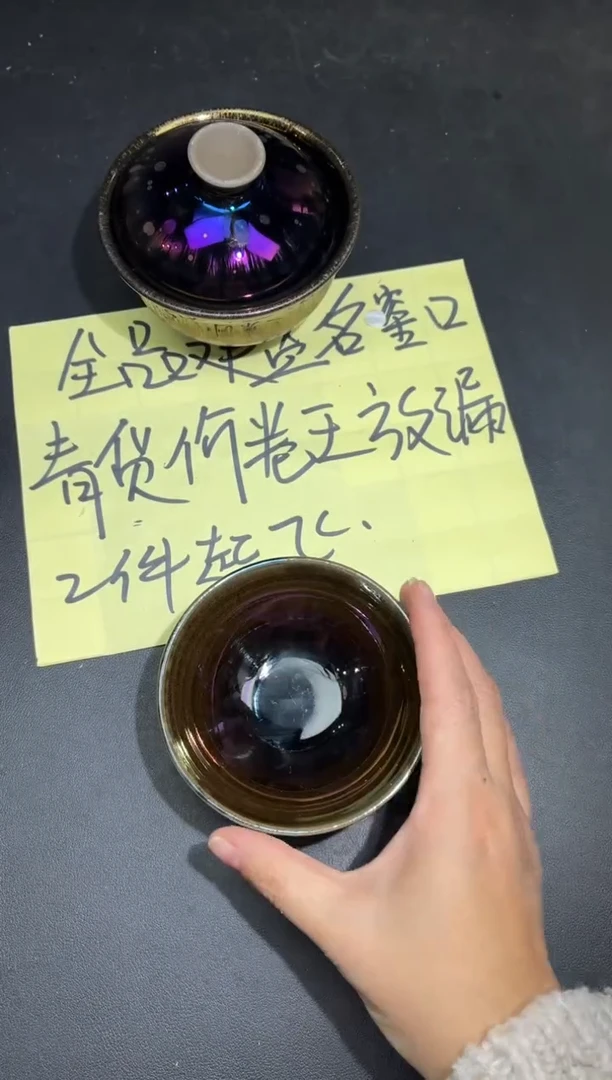 全品签名窑口
青货价卷王放漏
2件起飞.